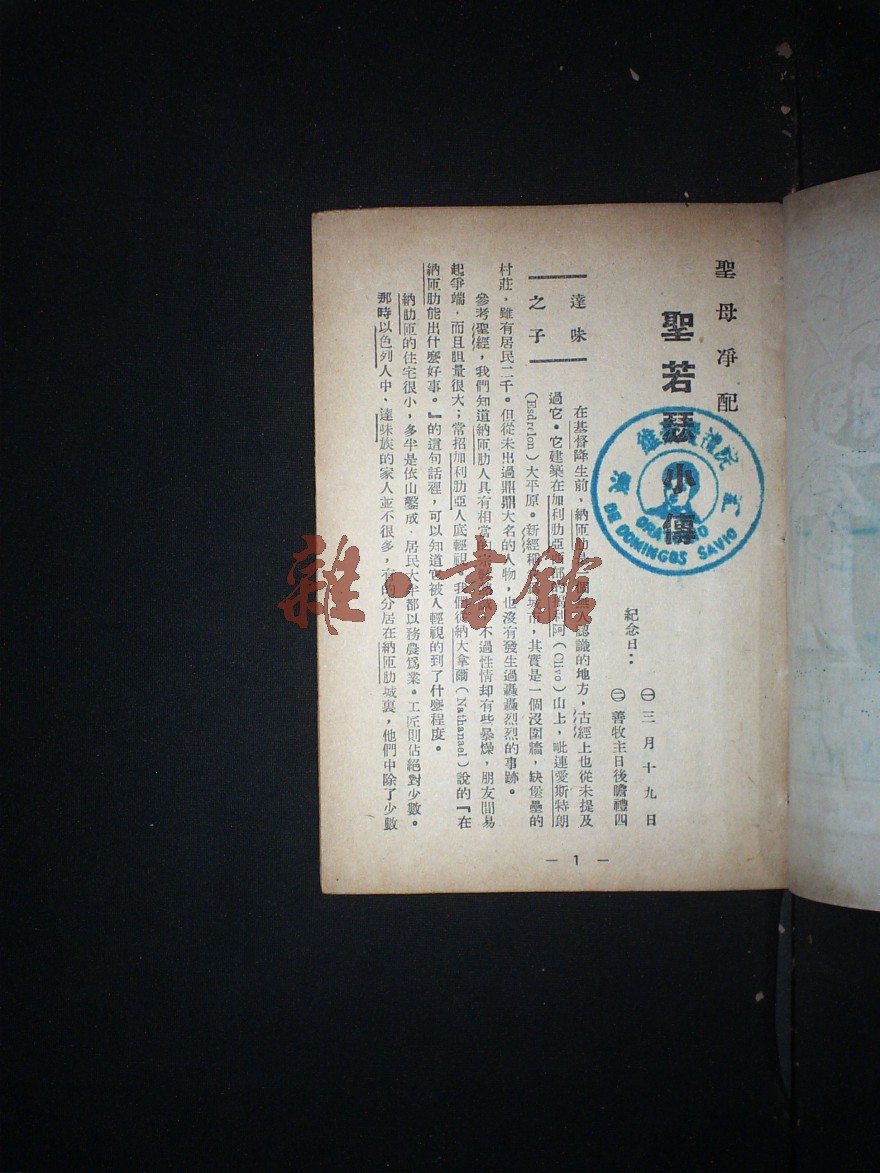 聖母淨配
聖若瑟小傳
紀念日：
㊀三月十九日
㊁善牧主日後瞻禮四
達味
之子
在基督降生前，納匝肋是個無人認識的地方，古經上也從未提及
過它。它建築在加利肋亞 利阿（Clivo）山上，毗連愛斯特朗
（Esdrelon）大平原。新經稱 城市，其實是一個沒圍牆，缺堡壘的
村莊，雖有居民二千。但從未出過鼎鼎大名的人物，也沒有發生過轟轟烈烈的事跡。
參考聖經，我們知道納匝肋人具有相當的 不過性情却有些暴燥，朋友間易
起爭端，而且胆量很大；常招加利肋亞人底輕視。我們從納大拿爾（Nathanael）說的『在
納匝肋能出什麼好事。』的這句話裡，可以知道它被人輕視的到了什麼程度。
納肋匝的住宅很小，多半是依山鑿成．居民大半都以務農爲業。工匠則佔絕對少數。
那時以色列人中、達味族的家人並不很多，有的分居在納匝肋城裏，他們中除了少數
— 1 —
DE DOMINGOS SAVIO
雜·書館